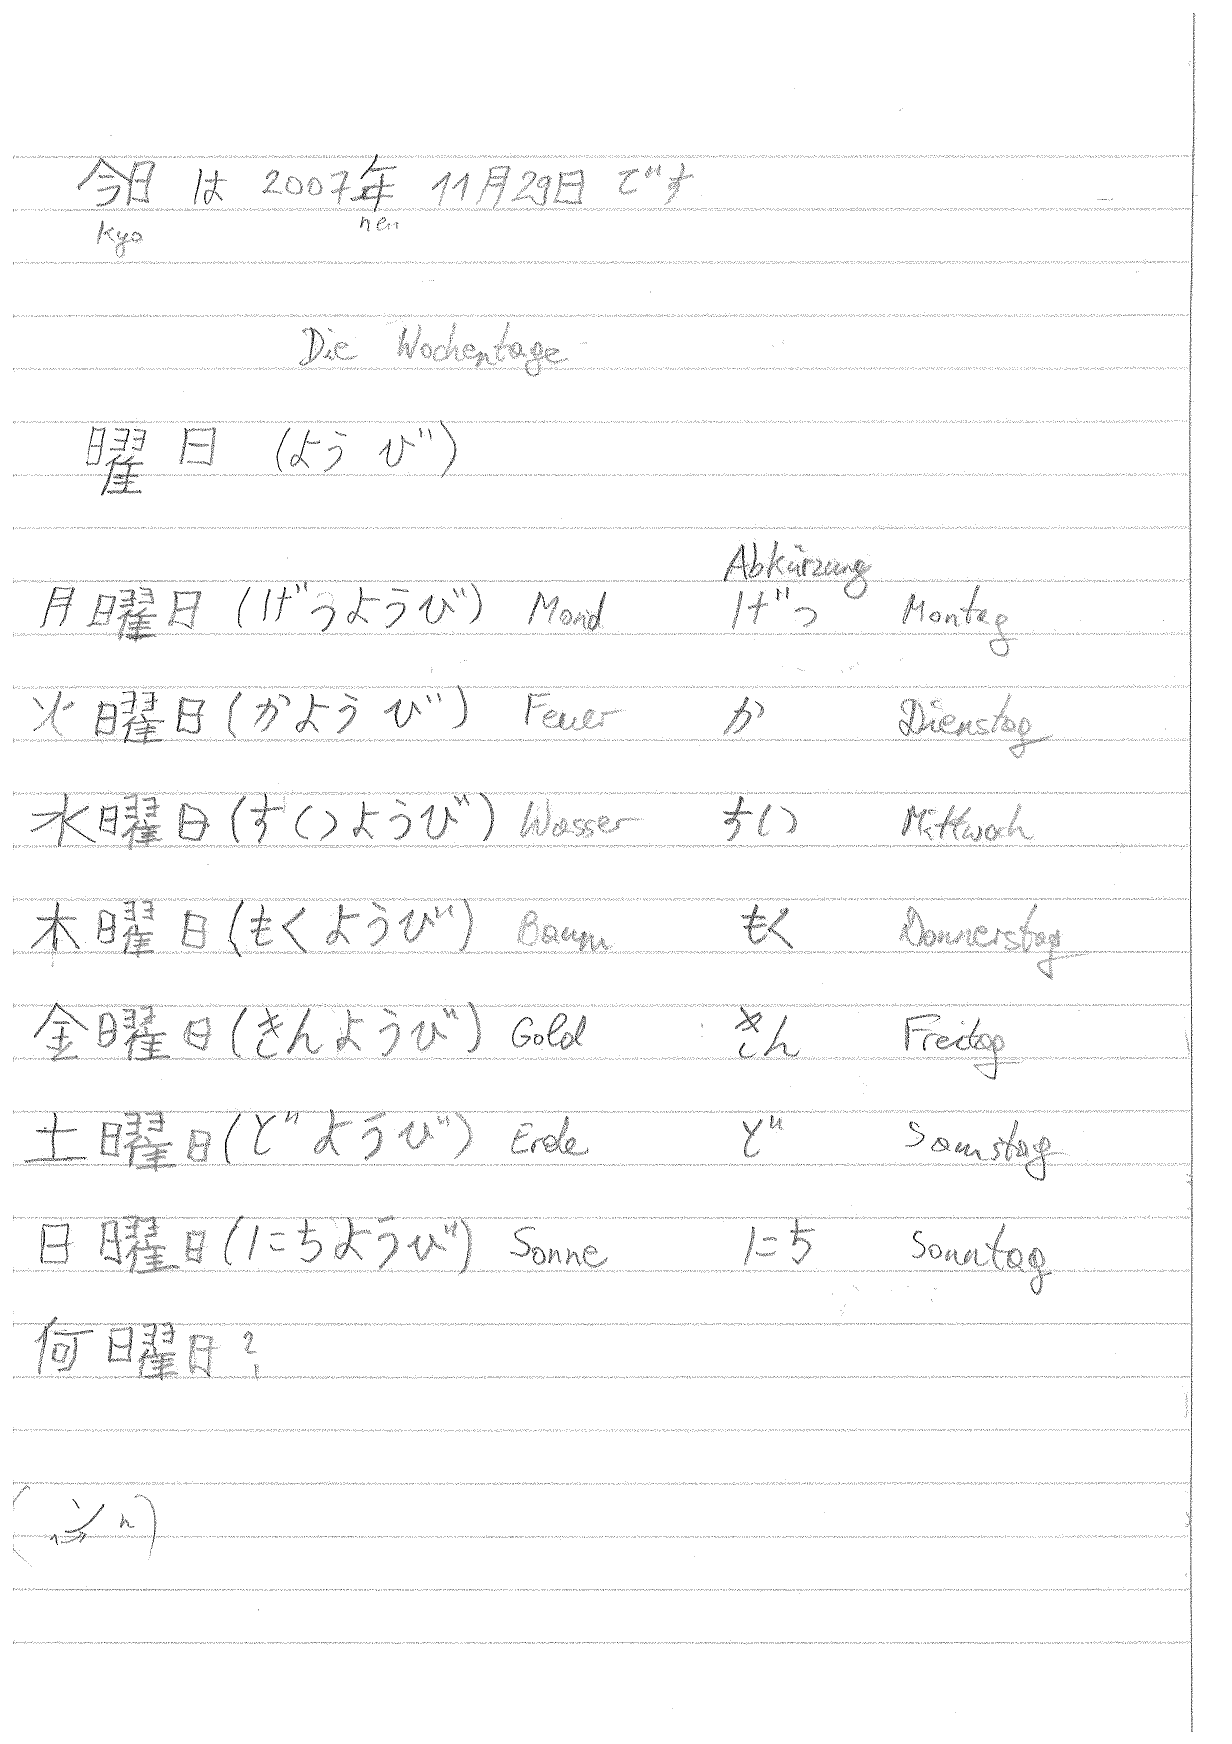 今日 は 2007年 11月29日 です
kyo nen
Die Wochentage
曜日 (ようび)
Abkürzung
月曜日 (げつようび) Mond げつ Montag
火曜日 (かようび) Feuer か Dienstag
水曜日 (すいようび) Wasser すい Mittwoch
木曜日 (もくようび) Baum もく Donnerstag
金曜日 (きんようび) Gold きん Freitag
土曜日 (どようび) Erde ど Samstag
日曜日 (にちようび) Sonne にち Sonntag
何曜日?